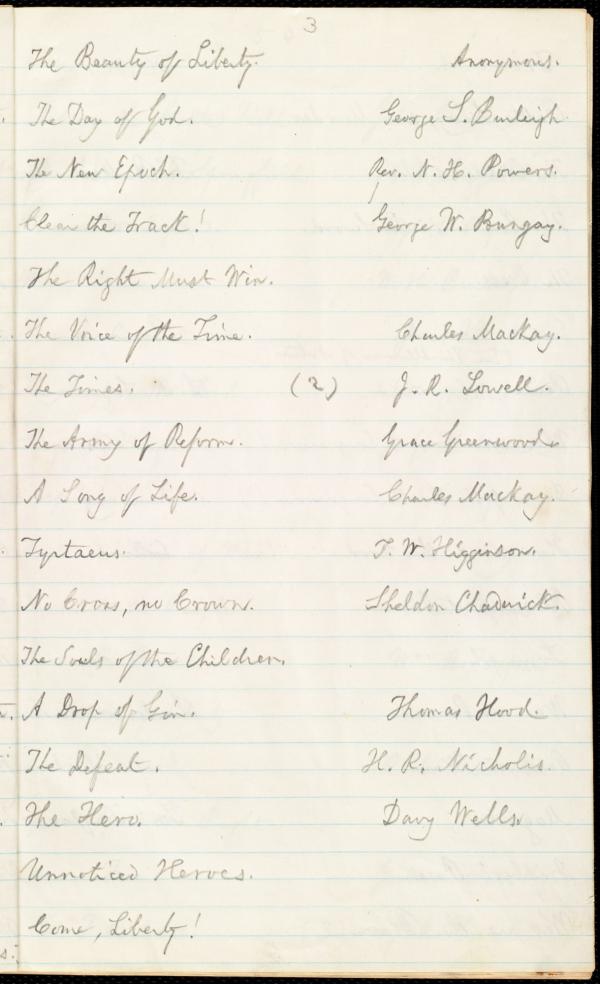 3
The Beauty of Liberty. Anonymous.
The Day of God. George S. Burleigh
The New Epoch. Rev. N. H. Powers.
Clear the Track! George W. Bungay.
The Right Must Win.
The Voice of the Time. Charles Mackay.
The Times. (2) J. R. Lowell.
The Army of Reform. Grace Greenwood.
A Song of Life. Charles Mackay.
Tyrtaeus. T. W. Higginson.
No Cross, no Crown. Sheldon Chadwick.
The Souls of the Children.
A Drop of Gin. Thomas Hood.
The Defeat. H. R. Nicholls.
The Hero. Davy Wells.
Unnoticed Heroes.
Come, Liberty!